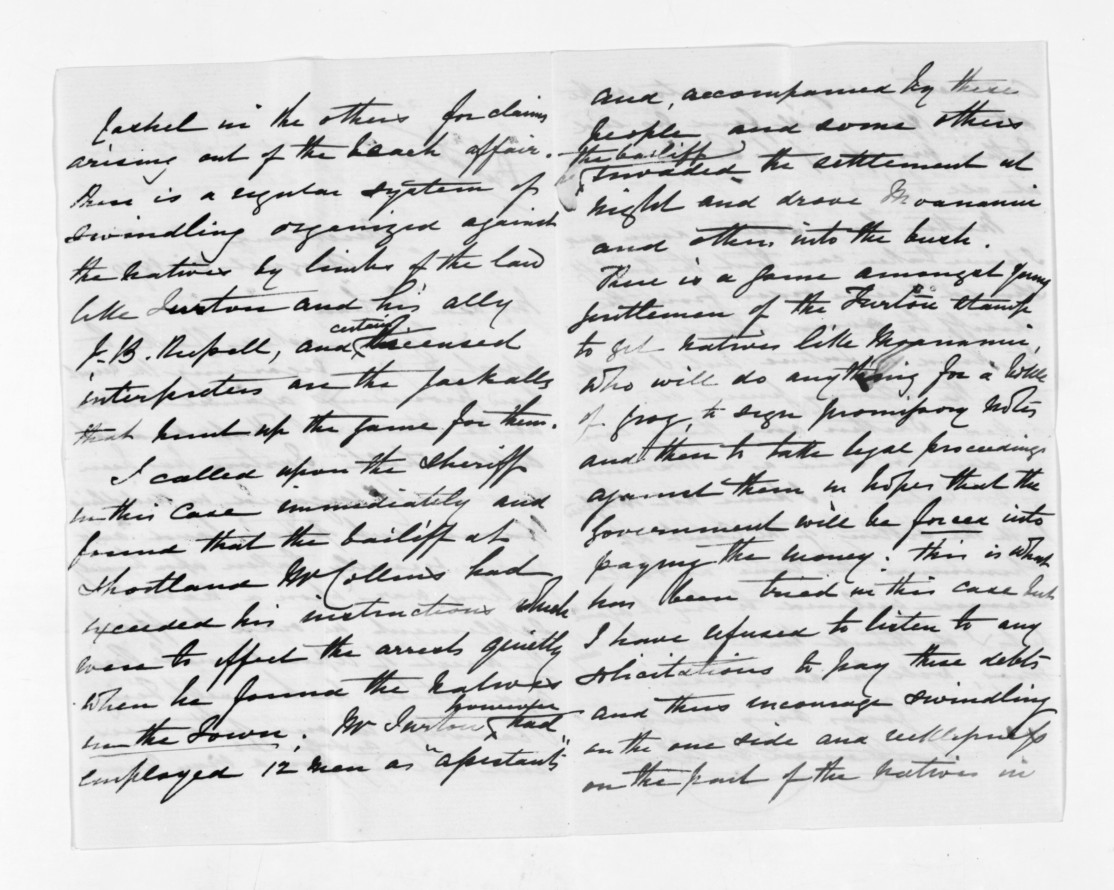 Cashel in the others for claims
arising out of the beach affair.
There is a regular system of
swindling organized against
the natives by limbs of the law
like Turton and his ally
J. B. Russell, and certain licensed
interpreters are the jackalls
that hunt up the game for them.
I called upon the Sheriff
in this case immediately and
found that the bailiff at
Shortland Mr Collins had
exceeded his instructions which
were to effect the arrests quietly
when he found the natives
in the Town. Mr Turton however had
employed 12 men as "assistants"
and, accompanied by these
people and some others
the bailiff invaded the settlement at
night and drove Moananui
and others into the bush.
There is a game amongst young
gentlemen of the Turton stamp
to get natives like Moananui,
who will do anything for a bottle
of grog, to sign promissory notes
and then to take legal proceedings
against them in hopes that the
Government will be forced into
paying the money. This is what
has been tried in this case but
I have refused to listen to any
solicitations to pay these debts
and thus encourage swindling
on the one side and recklessness
on the part of the natives in